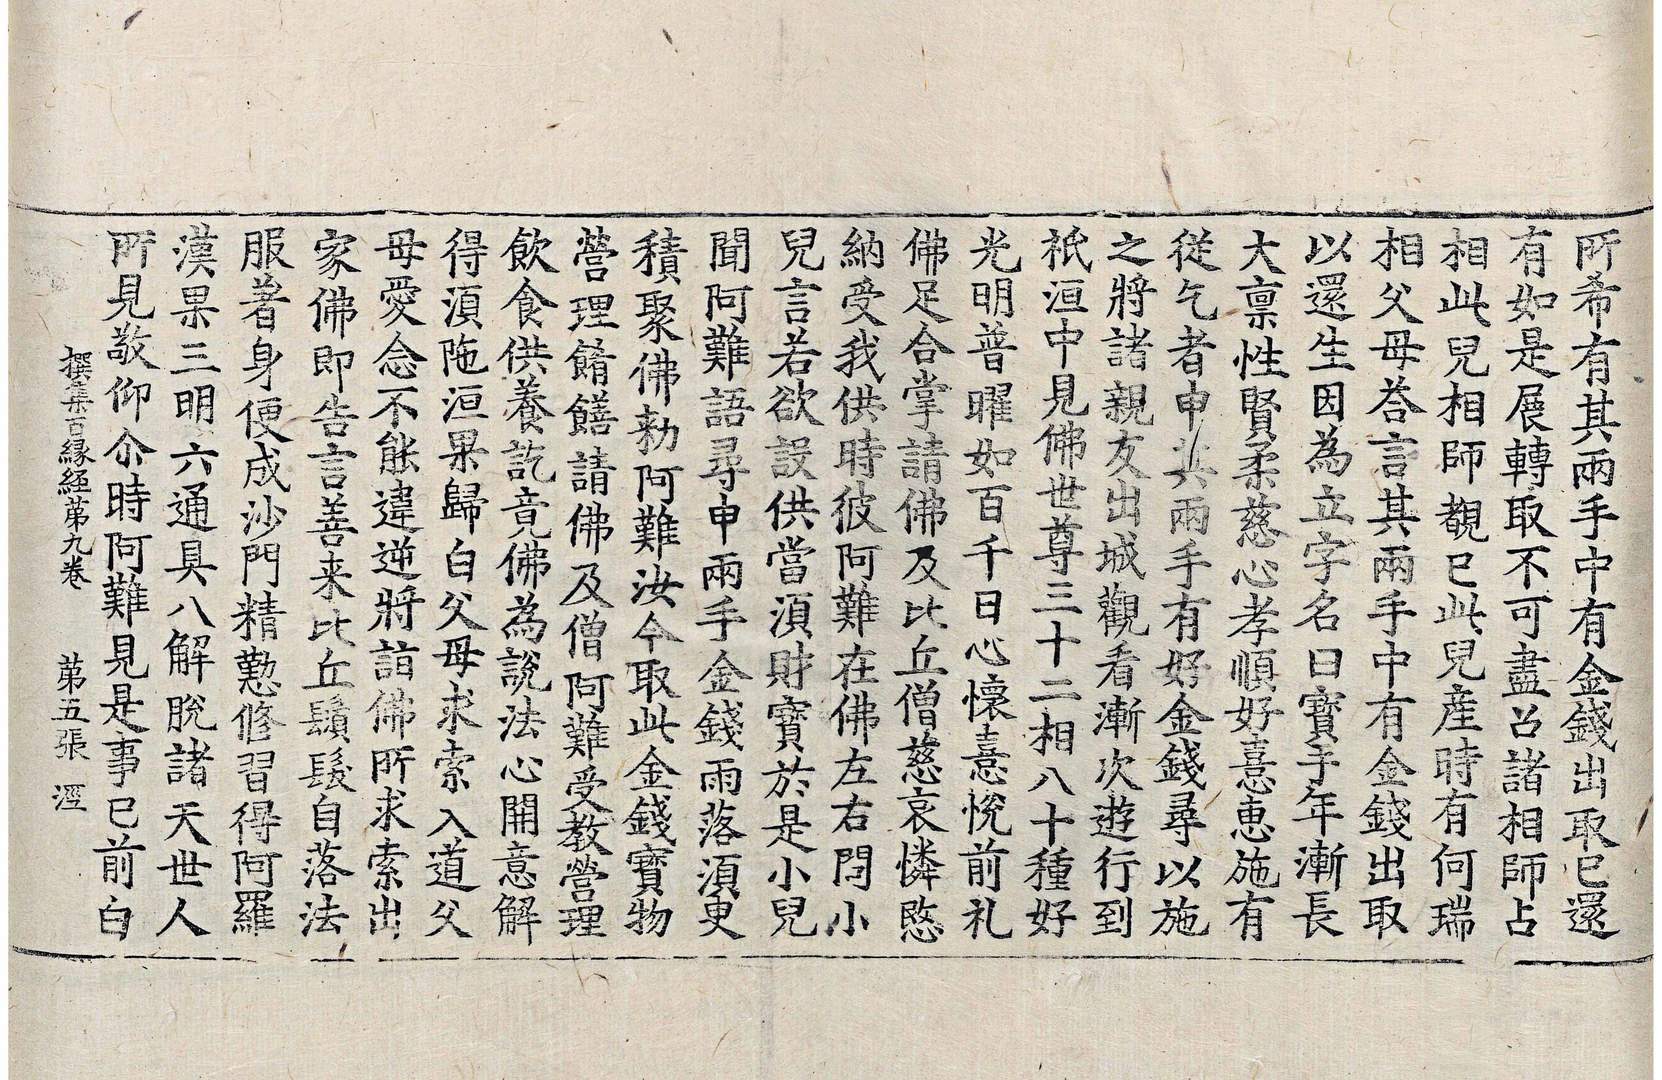 所希有其兩手中有金錢出取已還
有如是展轉取不可盡召諸相師占
相此兒相師覩已此兒產時有何瑞
相父母荅言其兩手中有金錢出取
以還生因為立字名曰寶手年漸長
大禀性賢柔慈心孝順好憙惠施有
從乞者申其兩手有好金錢尋以施
之將諸親友出城觀看漸次遊行到
祇洹中見佛世尊三十二相八十種好
光明普曜如百千日心懷憙悅前礼
佛足合掌請佛及比丘僧慈哀憐愍
納受我供時彼阿難在佛左右問小
兒言若欲設供當湏財寶於是小兒
聞阿難語尋申兩手金錢雨落湏臾
積聚佛勑阿難汝今取此金錢寶物
營理餚饍請佛及僧阿難受教營理
飲食供養訖竟佛為說法心開意解
得湏陁洹果歸白父母求索入道父
母愛念不能違逆將詣佛所求索出
家佛即告言善来比丘鬚髮自落法
服著身便成沙門精懃修習得阿羅
漢果三明六通具八解脫諸天世人
所見敬仰尒時阿難見是事已前白
撰集百緣經第九卷 第五張 溼